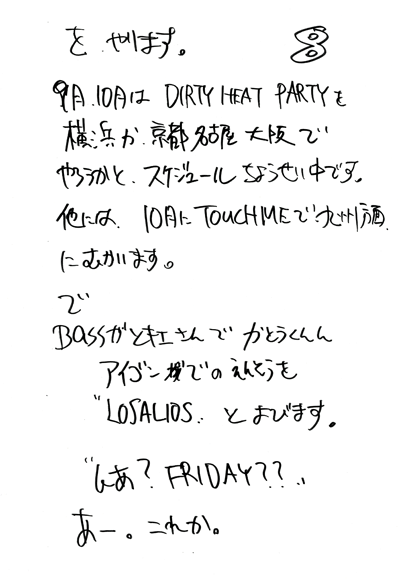 を やります。 8
9月.10月は DIRTY HEAT PARTYを
横浜か.京都 名古屋 大阪で
やろうかと、スケジュールちょうせい中です。
他には、10月にTOUCHMEで九州方面
にむかいます。
で
BASSがトキエさんで かとうくん
アイゴン でのえんそうを
"LOSALIOS" とよびます。
"しあ? FRIDAY??"
あー。これか。